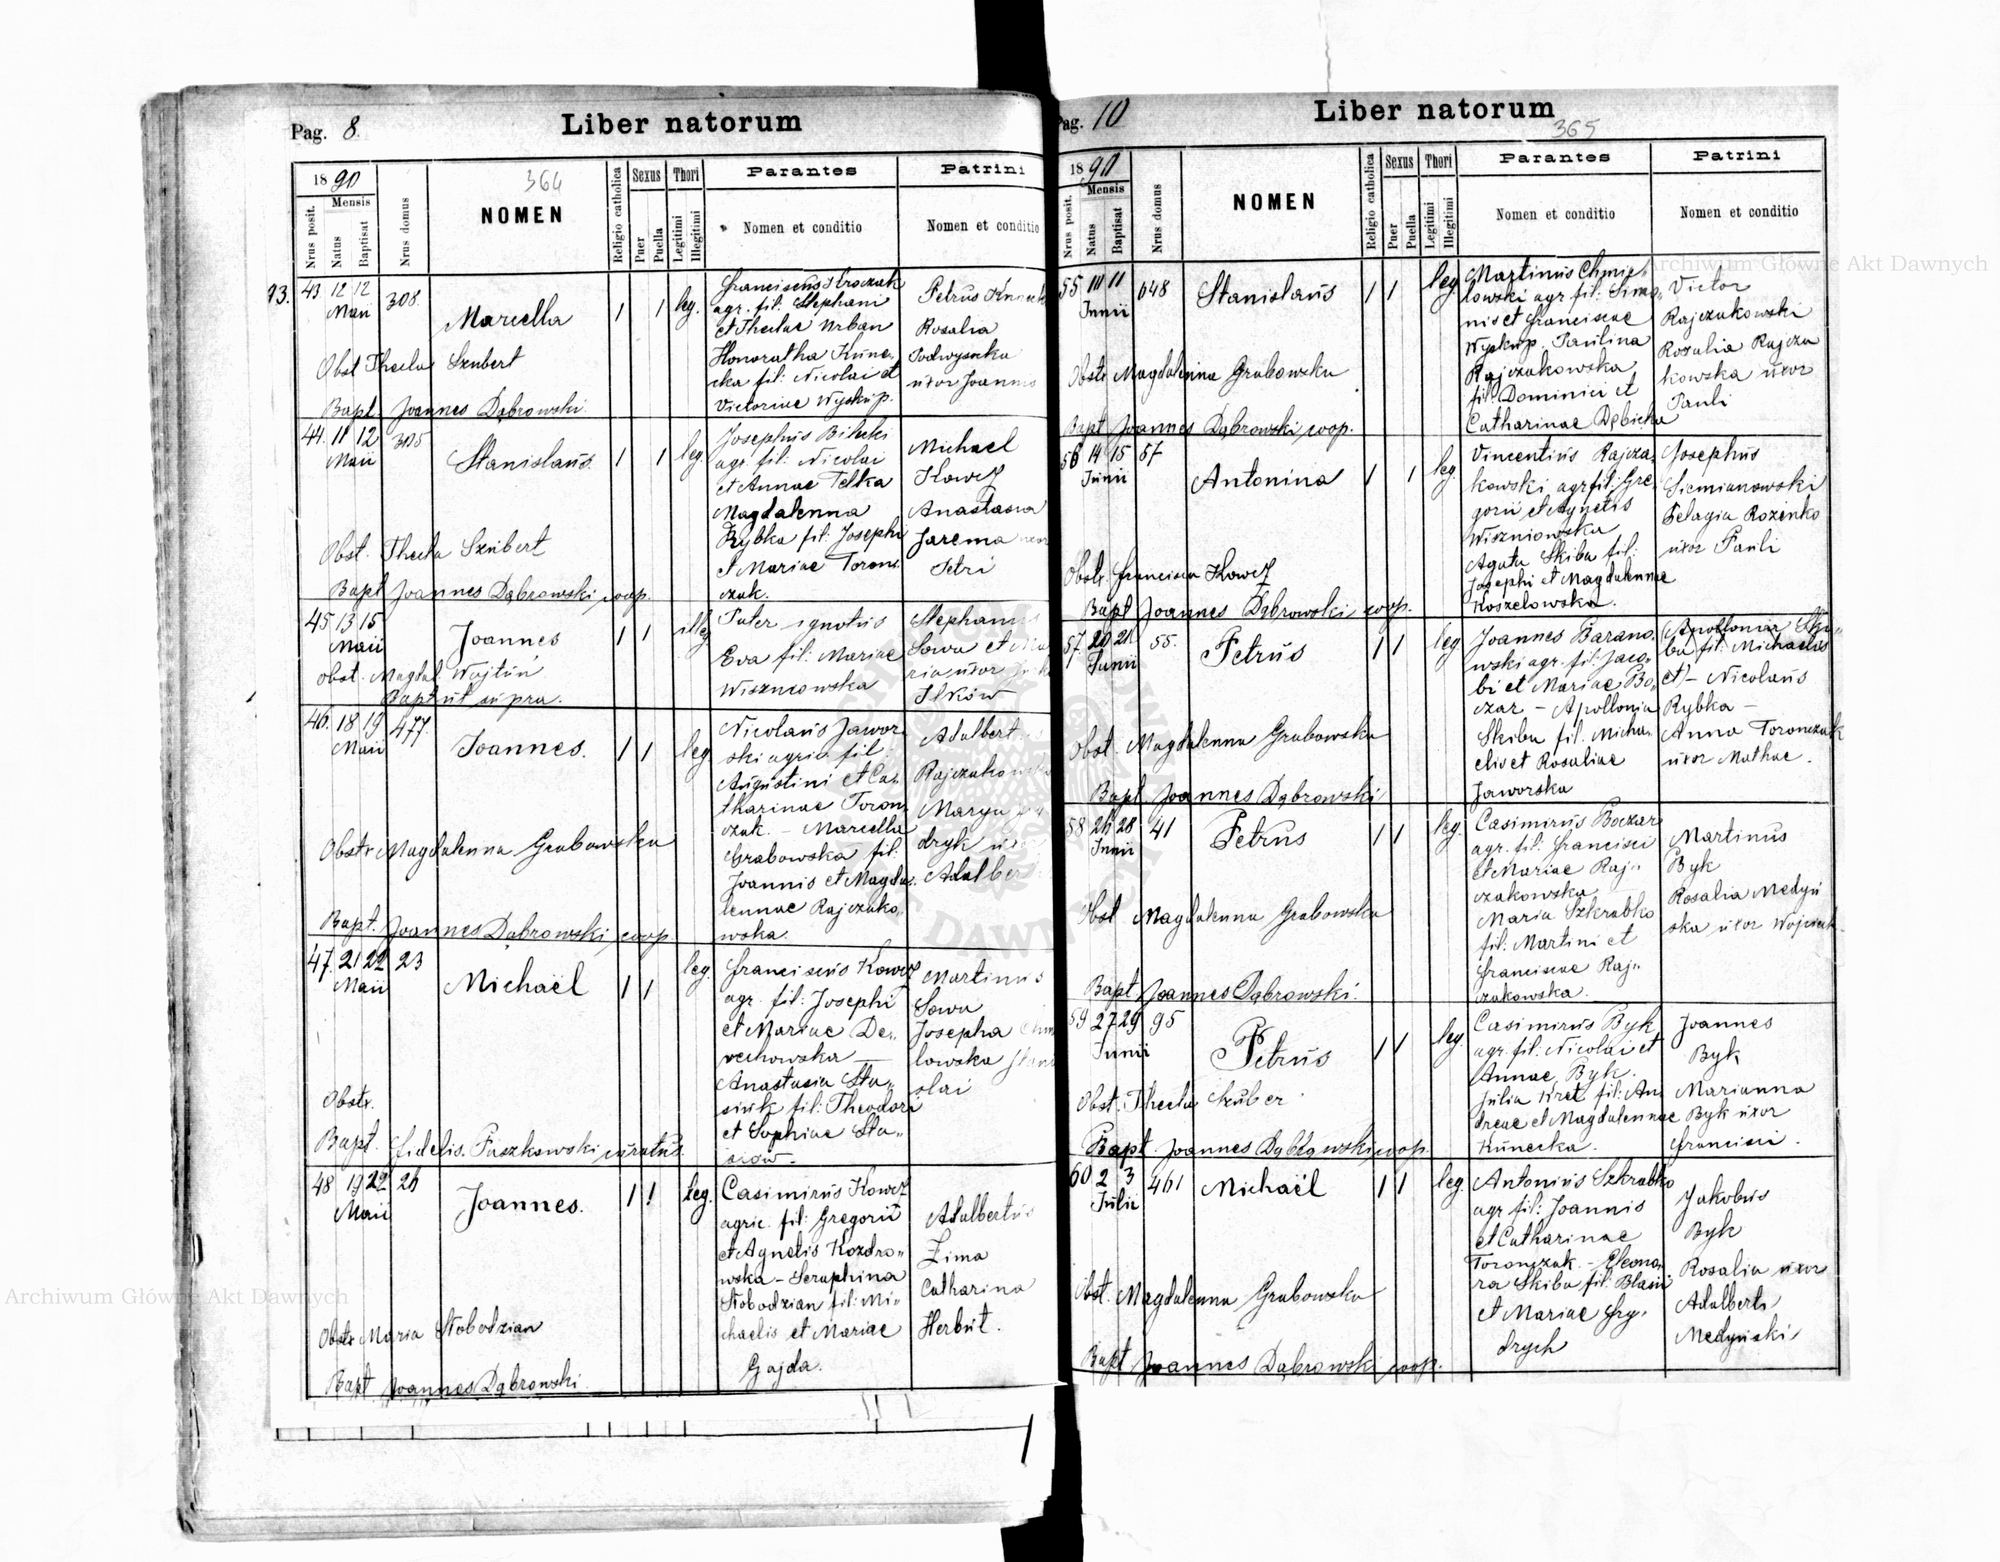 Pag. 8
Liber natorum
364
1890
Mensis
Nrus posit.
Natus
Baptisat
Nrus domus
NOMEN
Religio catholica
Sexus
Puer
Puella
Thori
Legitimi
Illegitimi
Parantes
Nomen et conditio
Patrini
Nomen et conditio
43 12 12 308.
Maii
Marcella
1 1 leg.
agr. fil. Stephani
et Theclae Urban
Honoratha Kune,
cka fil: Nicolai et
Victoriae Wyskup.
Petrus
Rosalia
Podwysocka
uxor Joannis
Obst Thecla Szubert
Bapt. Joannes Dąbrowski.
44. 11 12 305
Maii
Stanislaus.
1 1 leg.
Josephus Bilecki
agr. fil. Nicolai
et Annae Pelka
Magdalenna
Rybka fil: Josephi
et Mariae Toron,
czuk.
Michael
Kowcz
Anastasia
Jarema uxor
Petri
Obst. Thecla Szubert
Bapt Joannes Dąbrowski coop.
45 13 15
Maii
Joannes
1 1 illeg.
Pater ignotus
Eva fil: Mariae
Wiszniowska
Stephanus
Sowa et Ma
ria uxor
Ilków
Obst. Magdal Wojtun
Bapt ut supra.
46. 18 19 477.
Maii
Joannes.
1 1 leg
Nicolaus Jawor,
ski agric. fil
Augustini et Ca,
tharinae Toron,
czuk. – Marcella
Grabowska fil.
Joannis et Magda,
lennae Rajczako,
wska.
Adalbertus
Rajczakowski
Marya
dryk uxor
Adalber
Obstr Magdalenna Grabowska
Bapt. Joannes Dąbrowski coop
47. 21 22 23
Maii
Michaël
1 1 leg.
Franciscus Kowcz
agr. fil: Josephi
et Mariae De,,
rechowska —
Anastasia Sta,,
siuk fil: Theodori
et Sophiae Sta,,
Martinus
Sowa
Josepha
lowska
slai
Obstr.
Bapt. Fidelis Paszkowski curatus.
48 19 22 26
Maii
Joannes.
1 1 leg.
Casimirus Kowcz
agric. fil: Gregorii
et Agnetis Kozdro,,
wska – Seraphina
Słobodzian fil: Mi,,
chaelis et Mariae
Gajda.
Adalbertus
Zima
Catharina
Herbut.
Obstr Maria Słobodzian
Bapt Joannes Dąbrowski
Pag. 10
Liber natorum
365
1890
Mensis
Nrus posit.
Natus
Baptisat
Nrus domus
NOMEN
Religio catholica
Sexus
Puer
Puella
Thori
Legitimi
Illegitimi
Parantes
Nomen et conditio
Patrini
Nomen et conditio
55 648
Junii
Stanislaus
1 1 leg.
Martinus Chmie,
lowski agr. fil: Simo,
nis et Franciscae
Wyskup. Paulina
Rajczakowska
fil: Dominici et
Catharinae Dębicka
Victor
Rajczakowski
Rosalia Rajcza
kowska uxor
Pauli
Obstr Magdalenna Grabowska
Bapt Joannes Dąbrowski coop.
56 14 15 57
Junii
Antonina
1 1 leg.
Vincentius Rajcza,
kowski agr fil: Gre,
gorii et Agnetis
Wiszniowska
Agata Skiba fil:
Josephi et Magdalennae
Koszelowska.
Josephus
Siemianowski
Pelagia Rozenko
uxor Pauli
Obstr. Francisca Kowcz
Bapt Joannes Dąbrowski coop.
57. 20 21 55.
Junii
Petrus
1 1 leg
Joannes Barano,
wski agr. fil: Jaco,
bi et Mariae Bo,
czar – Apollonia
Skiba fil. Micha,
elis et Rosaliae
Jaworska
ba fil. Michaelis
et – Nicolaus
Rybka –
Anna Toronczuk
uxor Mathae.
Obst. Magdalenna Grabowska
Bapt Joannes Dąbrowski
58 26 28 41
Junii
Petrus
1 1 leg.
Casimirus Boczar
agr. fil: Francisci
et Mariae Raj,,
czakowska
Maria Szkrabko
fil: Martini et
Franciscae Raj,,
czakowska.
Martinus
Byk
Rosalia Medyń
ska uxor
Obst Magdalenna Grabowska
Bapt Joannes Dąbrowski.
59 27 29 95
Junii
Petrus
1 1 leg.
Casimirus Byk
agr. fil: Nicolai et
Annae Byk.
Julia Kret fil: An,
dreae et Magdalennae
Kunecka.
Joannes
Byk
Marianna
Byk uxor
Francisci.
Obst. Thecla Szuber
Bapt Joannes Dąbrowski coop
60 2 3 461
Julii
Michaël
1 1 leg.
Antonius Szkrabko
agr fil: Joannis
et Catharinae
Toronczuk. – Eleono,
ra Skiba fil: Blasii
et Mariae Fry,
drych
Jakobus
Byk
Rosalia uxor
Adalberti
Medyński
Obst. Magdalenna Grabowska
Bapt Joannes Dąbrowski coop.
Archiwum Główne Akt Dawnych
Archiwum Główne Akt Dawnych